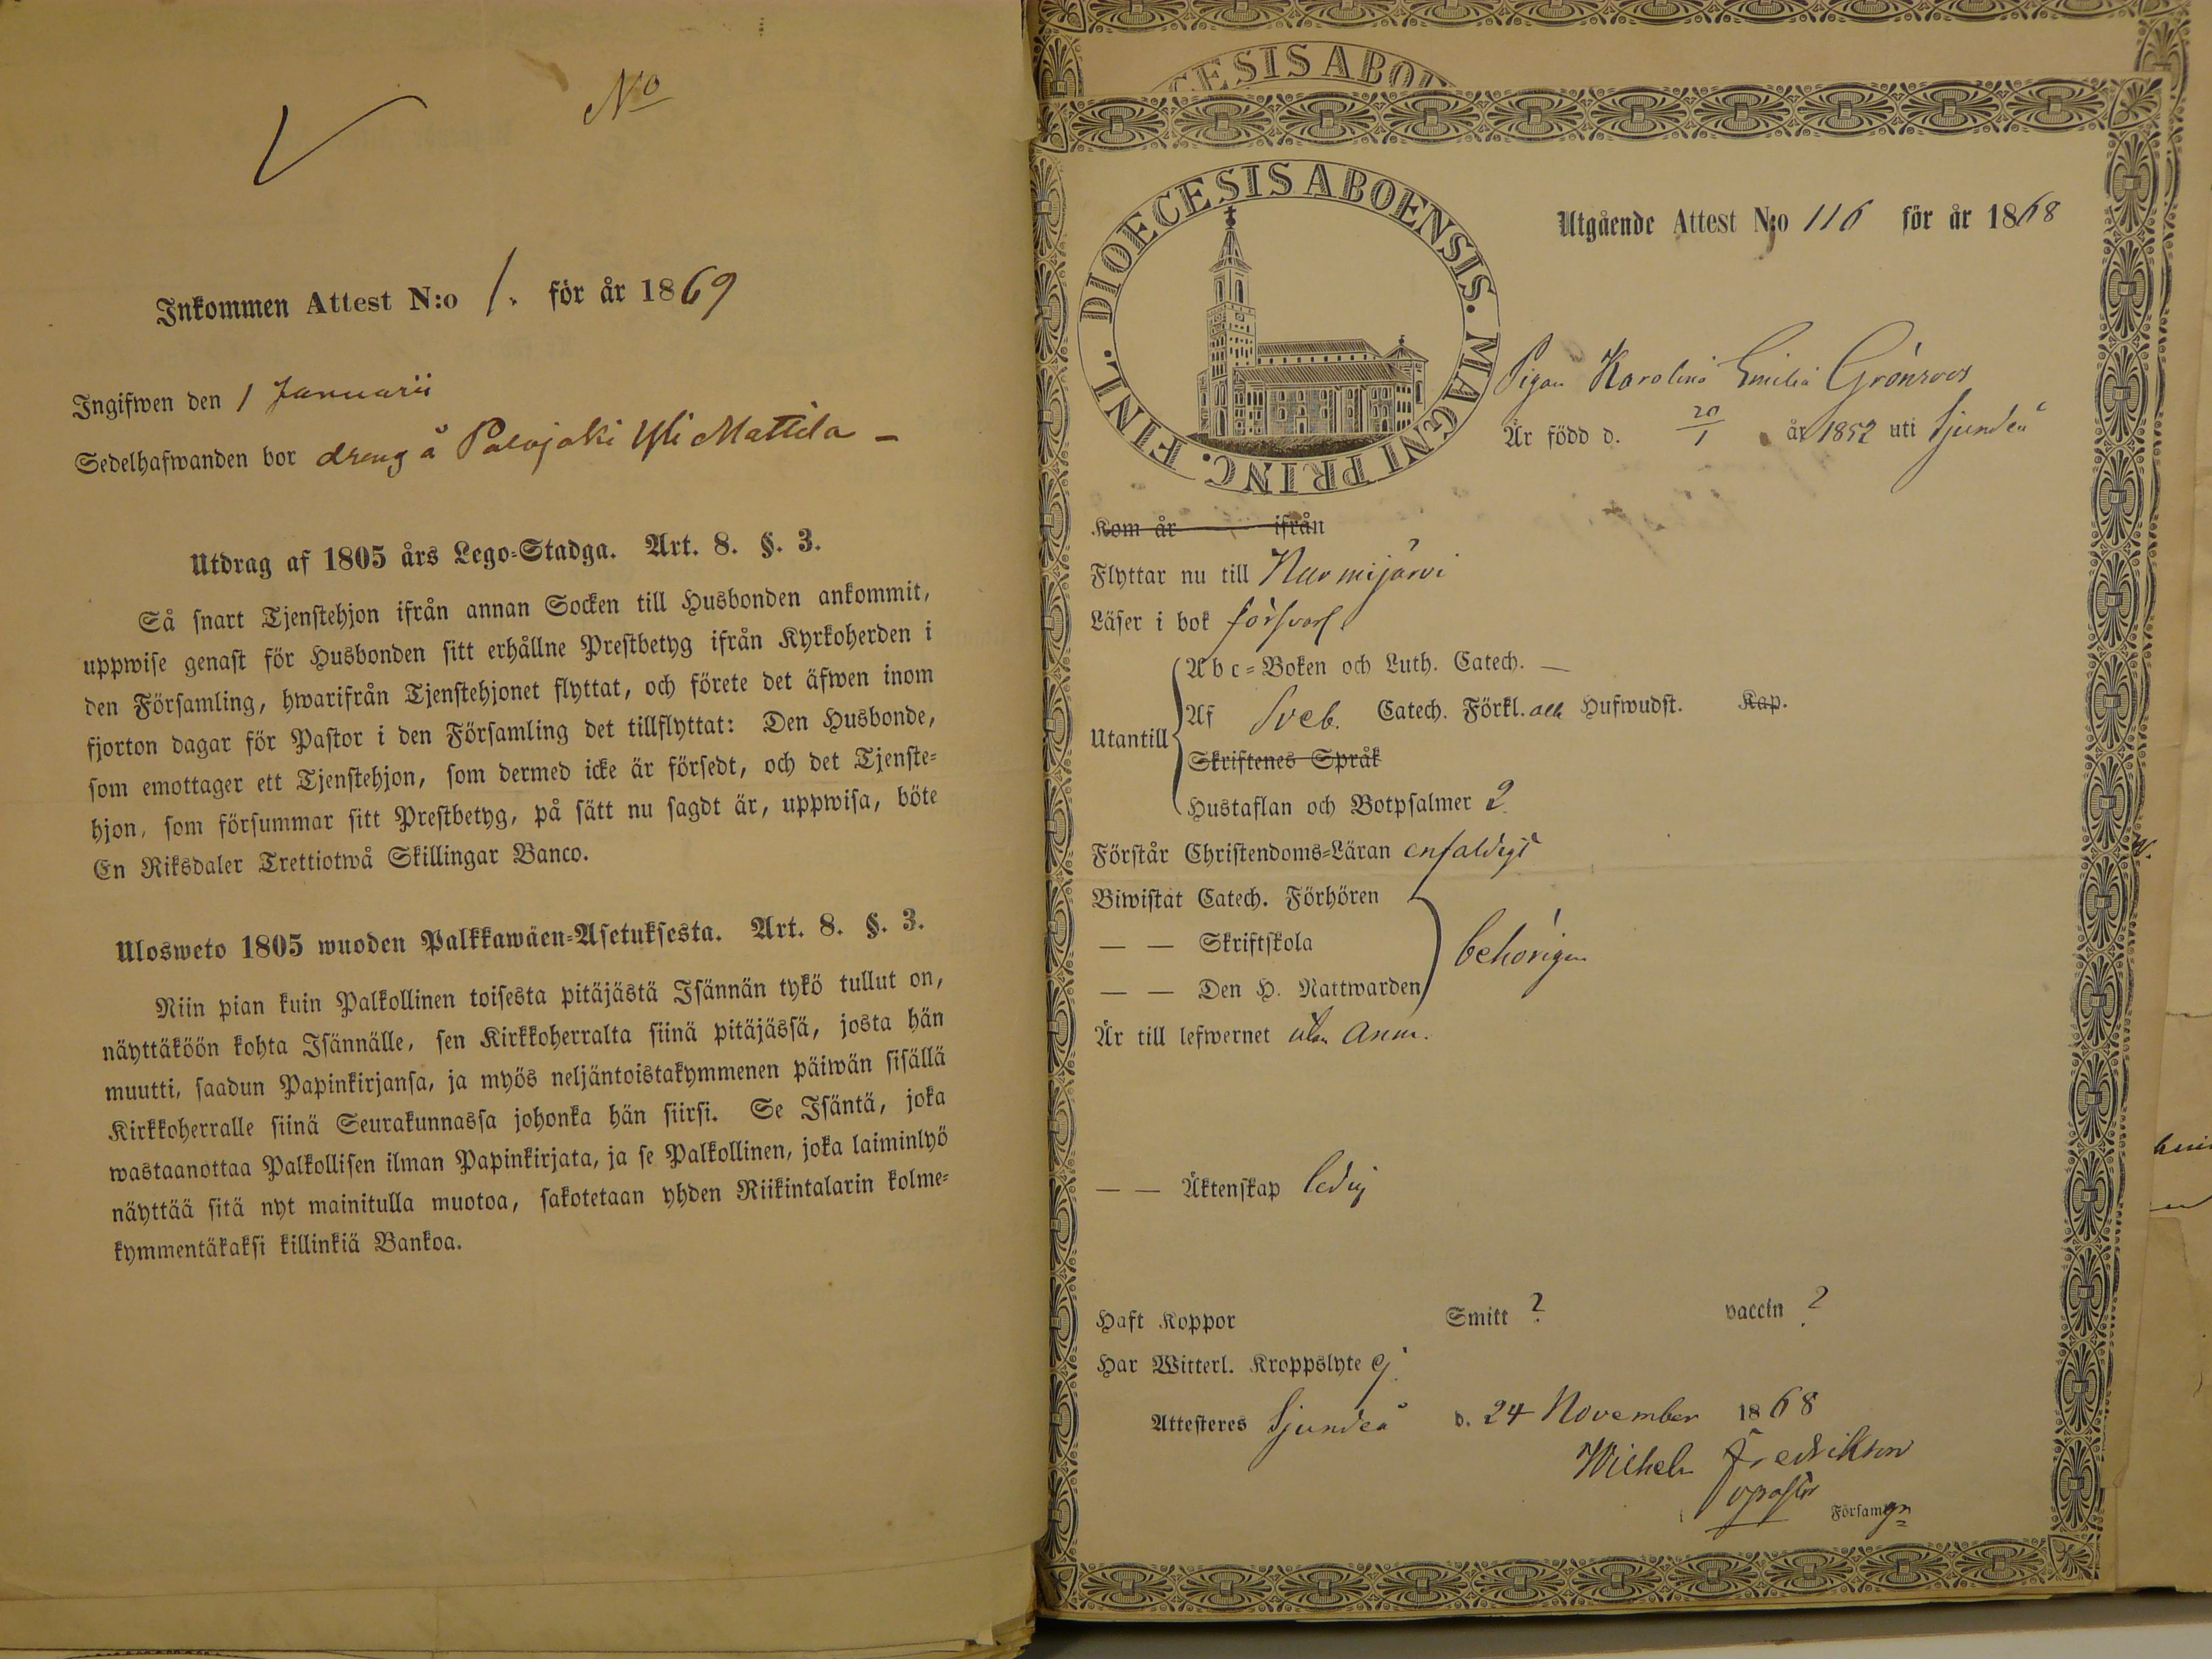 No
Inkommen Attest N:o 1. för år 1869
Ingifwen den 1 Januarii
Sedelhafwanden bor dreng å Palojoki Yli Mattila –
Utdrag af 1805 års Lego-Stadga. Art. 8. §. 3.
Så snart Tjenstehjon ifrån annan Socken till Husbonden ankommit,
uppwise genast för Husbonden sitt erhållne Prestbetyg ifrån Kyrkoherden i
den Församling, hwarifrån Tjenstehjonet flyttat, och förete det äfwen inom
fjorton dagar för Pastor i den Församling det tillflyttat: Den Husbonde,
som emottager ett Tjenstehjon, som dermed icke är försedt, och det Tjenste-
hjon, som försummar sitt Prestbetyg, på sätt nu sagdt är, uppwisa, böte
En Riksdaler Trettiotwå Skillingar Banco.
Ulosweto 1805 wuoden Palkkawäen-Asetuksesta. Art. 8. §. 3.
Niin pian kuin Palkollinen toisesta pitäjästä Isännän tykö tullut on,
näyttäköön kohta Isännälle, sen Kirkkoherralta siinä pitäjässä, josta hän
muutti, saadun Papinkirjansa, ja myös neljäntoistakymmenen päiwän sisällä
Kirkkoherralle siinä Seurakunnassa johonka hän siirsi. Se Isäntä, joka
wastaanottaa Palkollisen ilman Papinkirjata, ja se Palkollinen, joka laiminlyö
näyttää sitä nyt mainitulla muotoa, sakotetaan yhden Riikintalarin kolme-
kymmentäkaksi killinkiä Bankoa.
CESIS ABO
DIOECESIS ABOENSIS. MAGNI PRINC. FINL.
Utgående Attest N:o 116 för år 1868
Pigan Karolina Emilia Grönroos
Är född d. 20/1 år 1852 uti Sjundeå
Kom år ifrån
Flyttar nu till Nurmijärvi
Läser i bok försvarl.
Utantill
Abc-Boken och Luth. Catech. —
Af Sveb. Catech. Förkl. alla Hufwudst. Kap.
Skriftenes Språk
Hustaflan och Botpsalmer 2
Förstår Christendoms-Läran enfaldigt
Biwistat Catech. Förhören
— — Skriftskola
behörigen
— — Den H. Nattwarden
Är till lefwernet utan anm.
— — Äktenskap ledig
Haft Koppor Smitt ? vaccin ?
Har Witterl. Kroppslyte ej
Attesteres Sjundeå d. 24 November 1868
Wilhelm Fredrikson
i Församgn